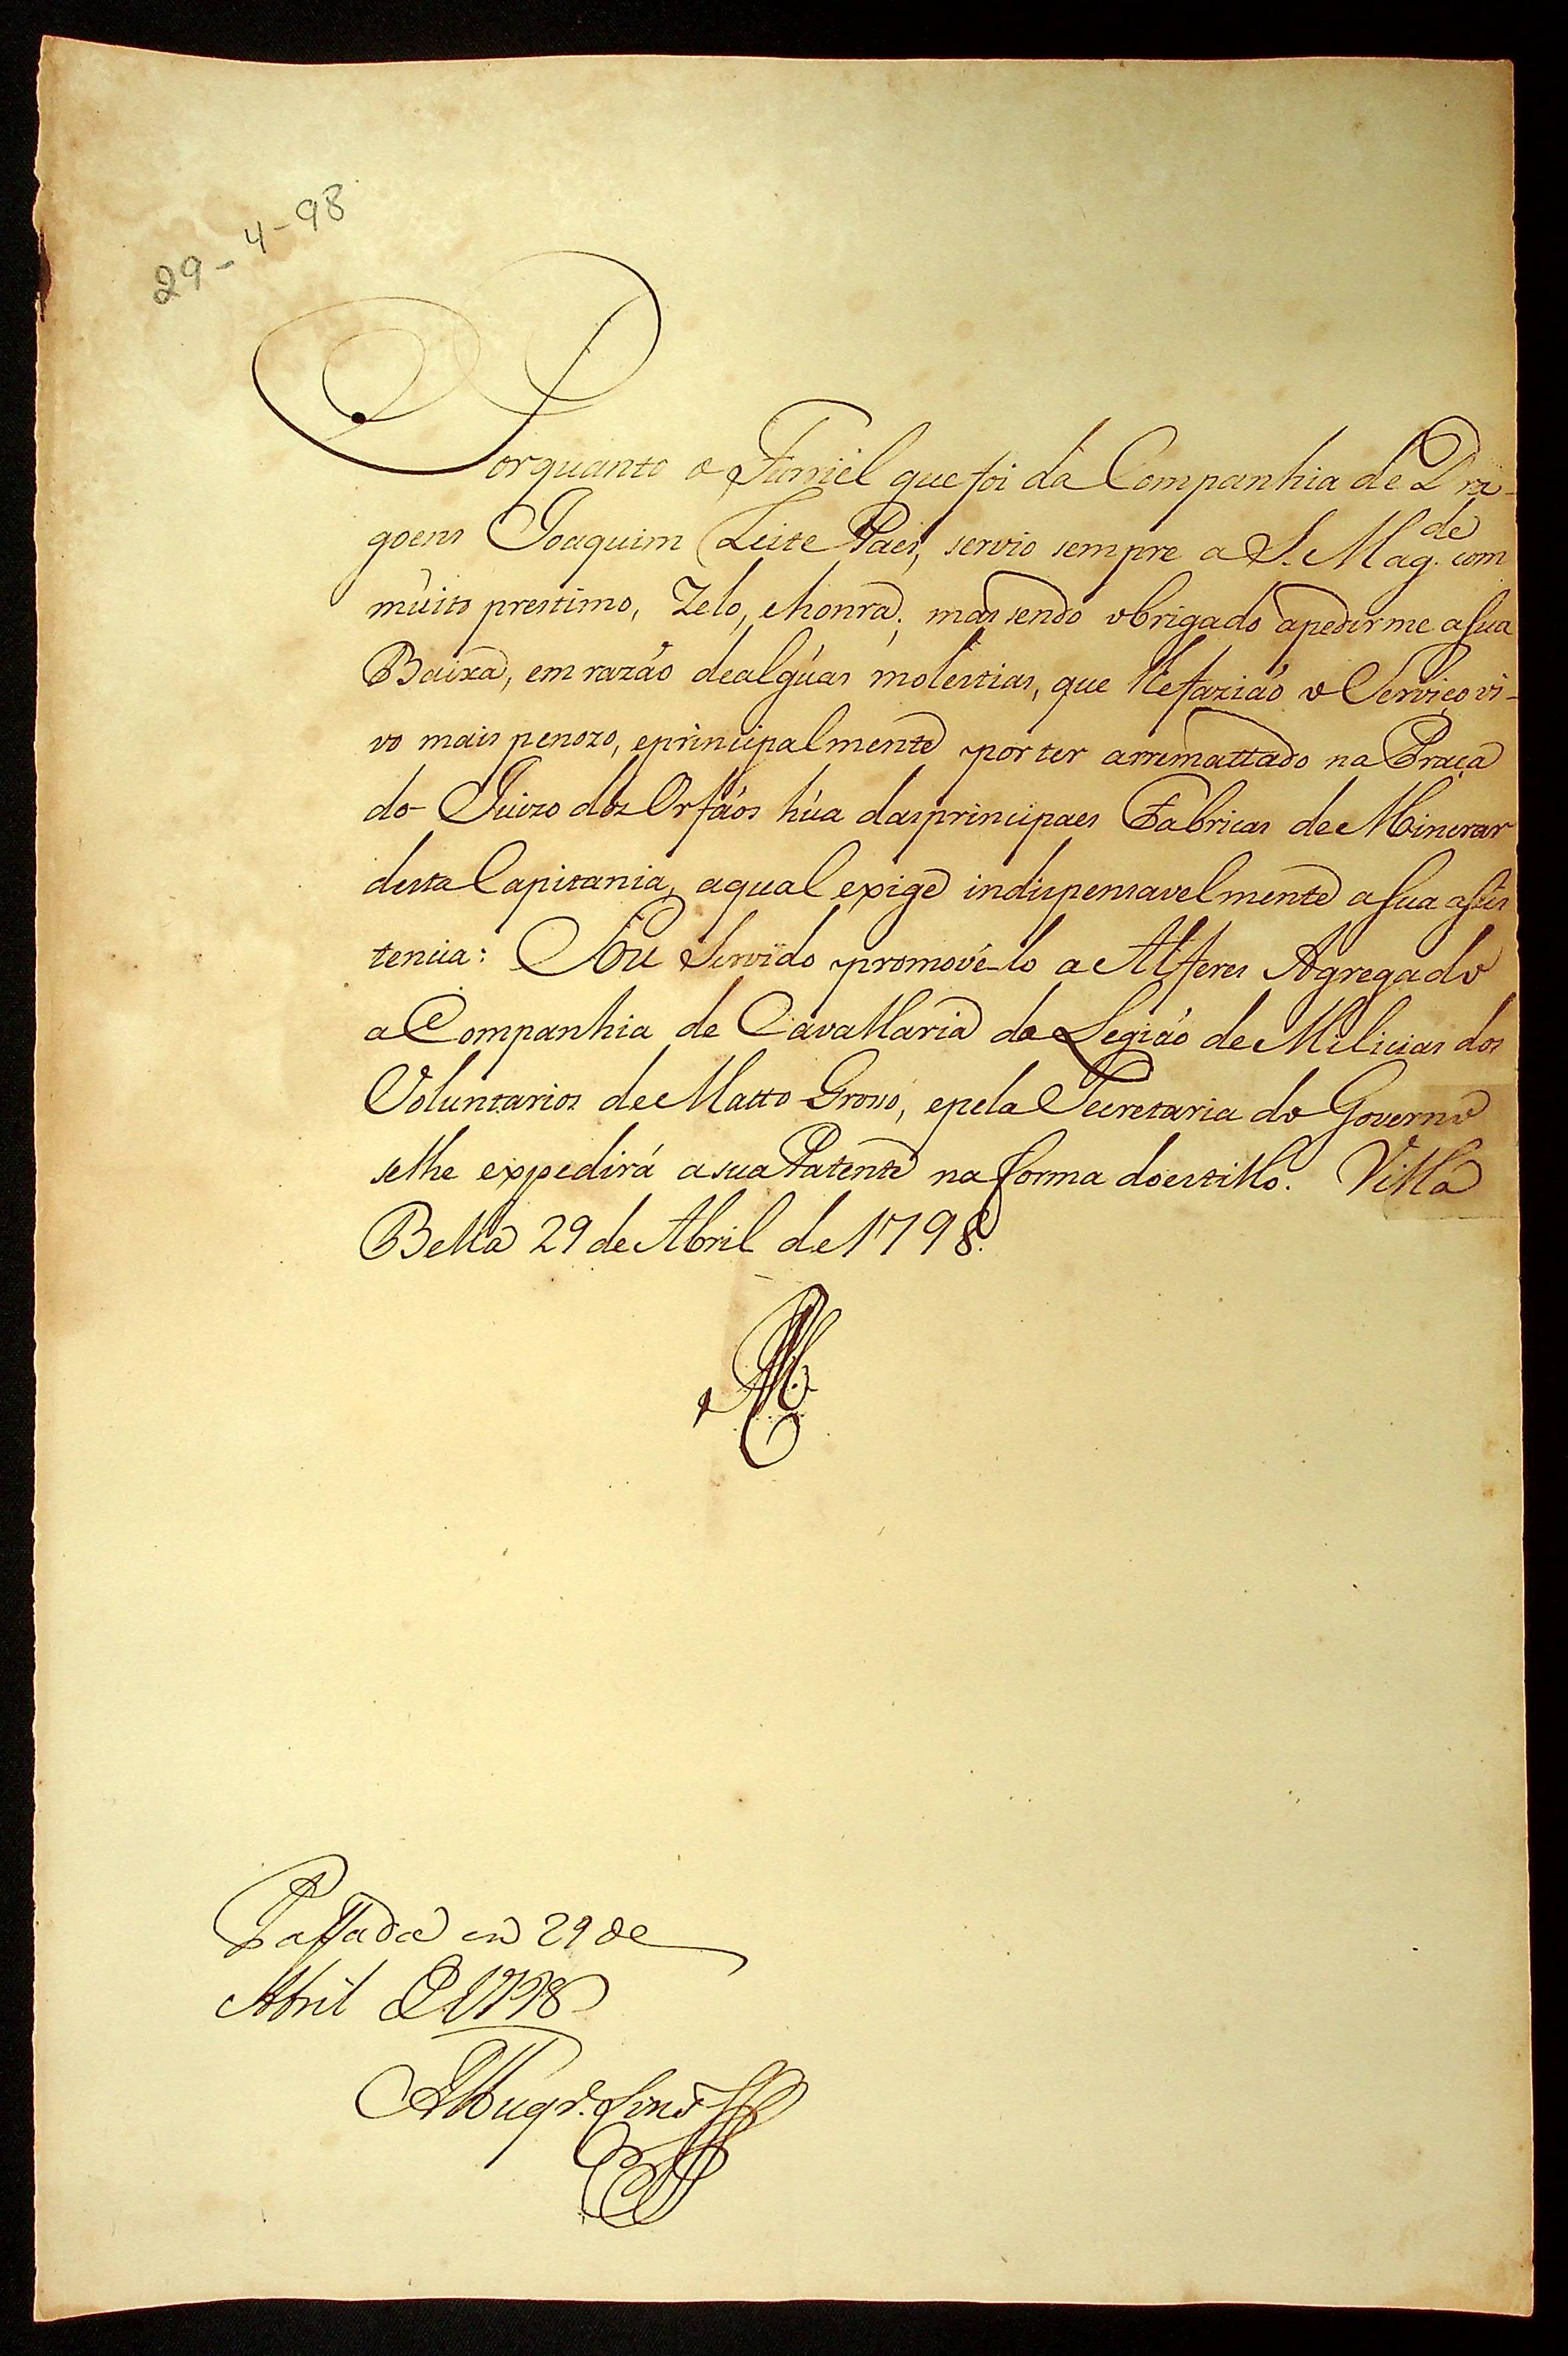 29-4-98
Porquanto o Furriel que foi da Companhia de Dra-
goens Joaquim Leite Paes, servio sempre a S. Mag.de com
muito prestimo, Zelo, e honra; mas sendo obrigado apedirme a sua
Baixa, em razão de algúas molestias, que lhe fazião o Serviço vi-
vo mais penozo, e principalmente por ter arremattado na Praça
do Juizo dos Orfãos húa das principaes Fabricas de Minerar
desta Capitania, aqual exige indispensavelmente a sua assis
tencia: Sou Servido promovê-lo a Alferes Agregado
a Companhia de Cavallaria da Legião de Milicias dos
Voluntarios de Matto Grosso, e pela Secretaria do Governo
selhe expedirá a sua Patente na forma do estillo. Villa
Bella 29 de Abril de 1798.
Passada em 29 de
Abril de 1798